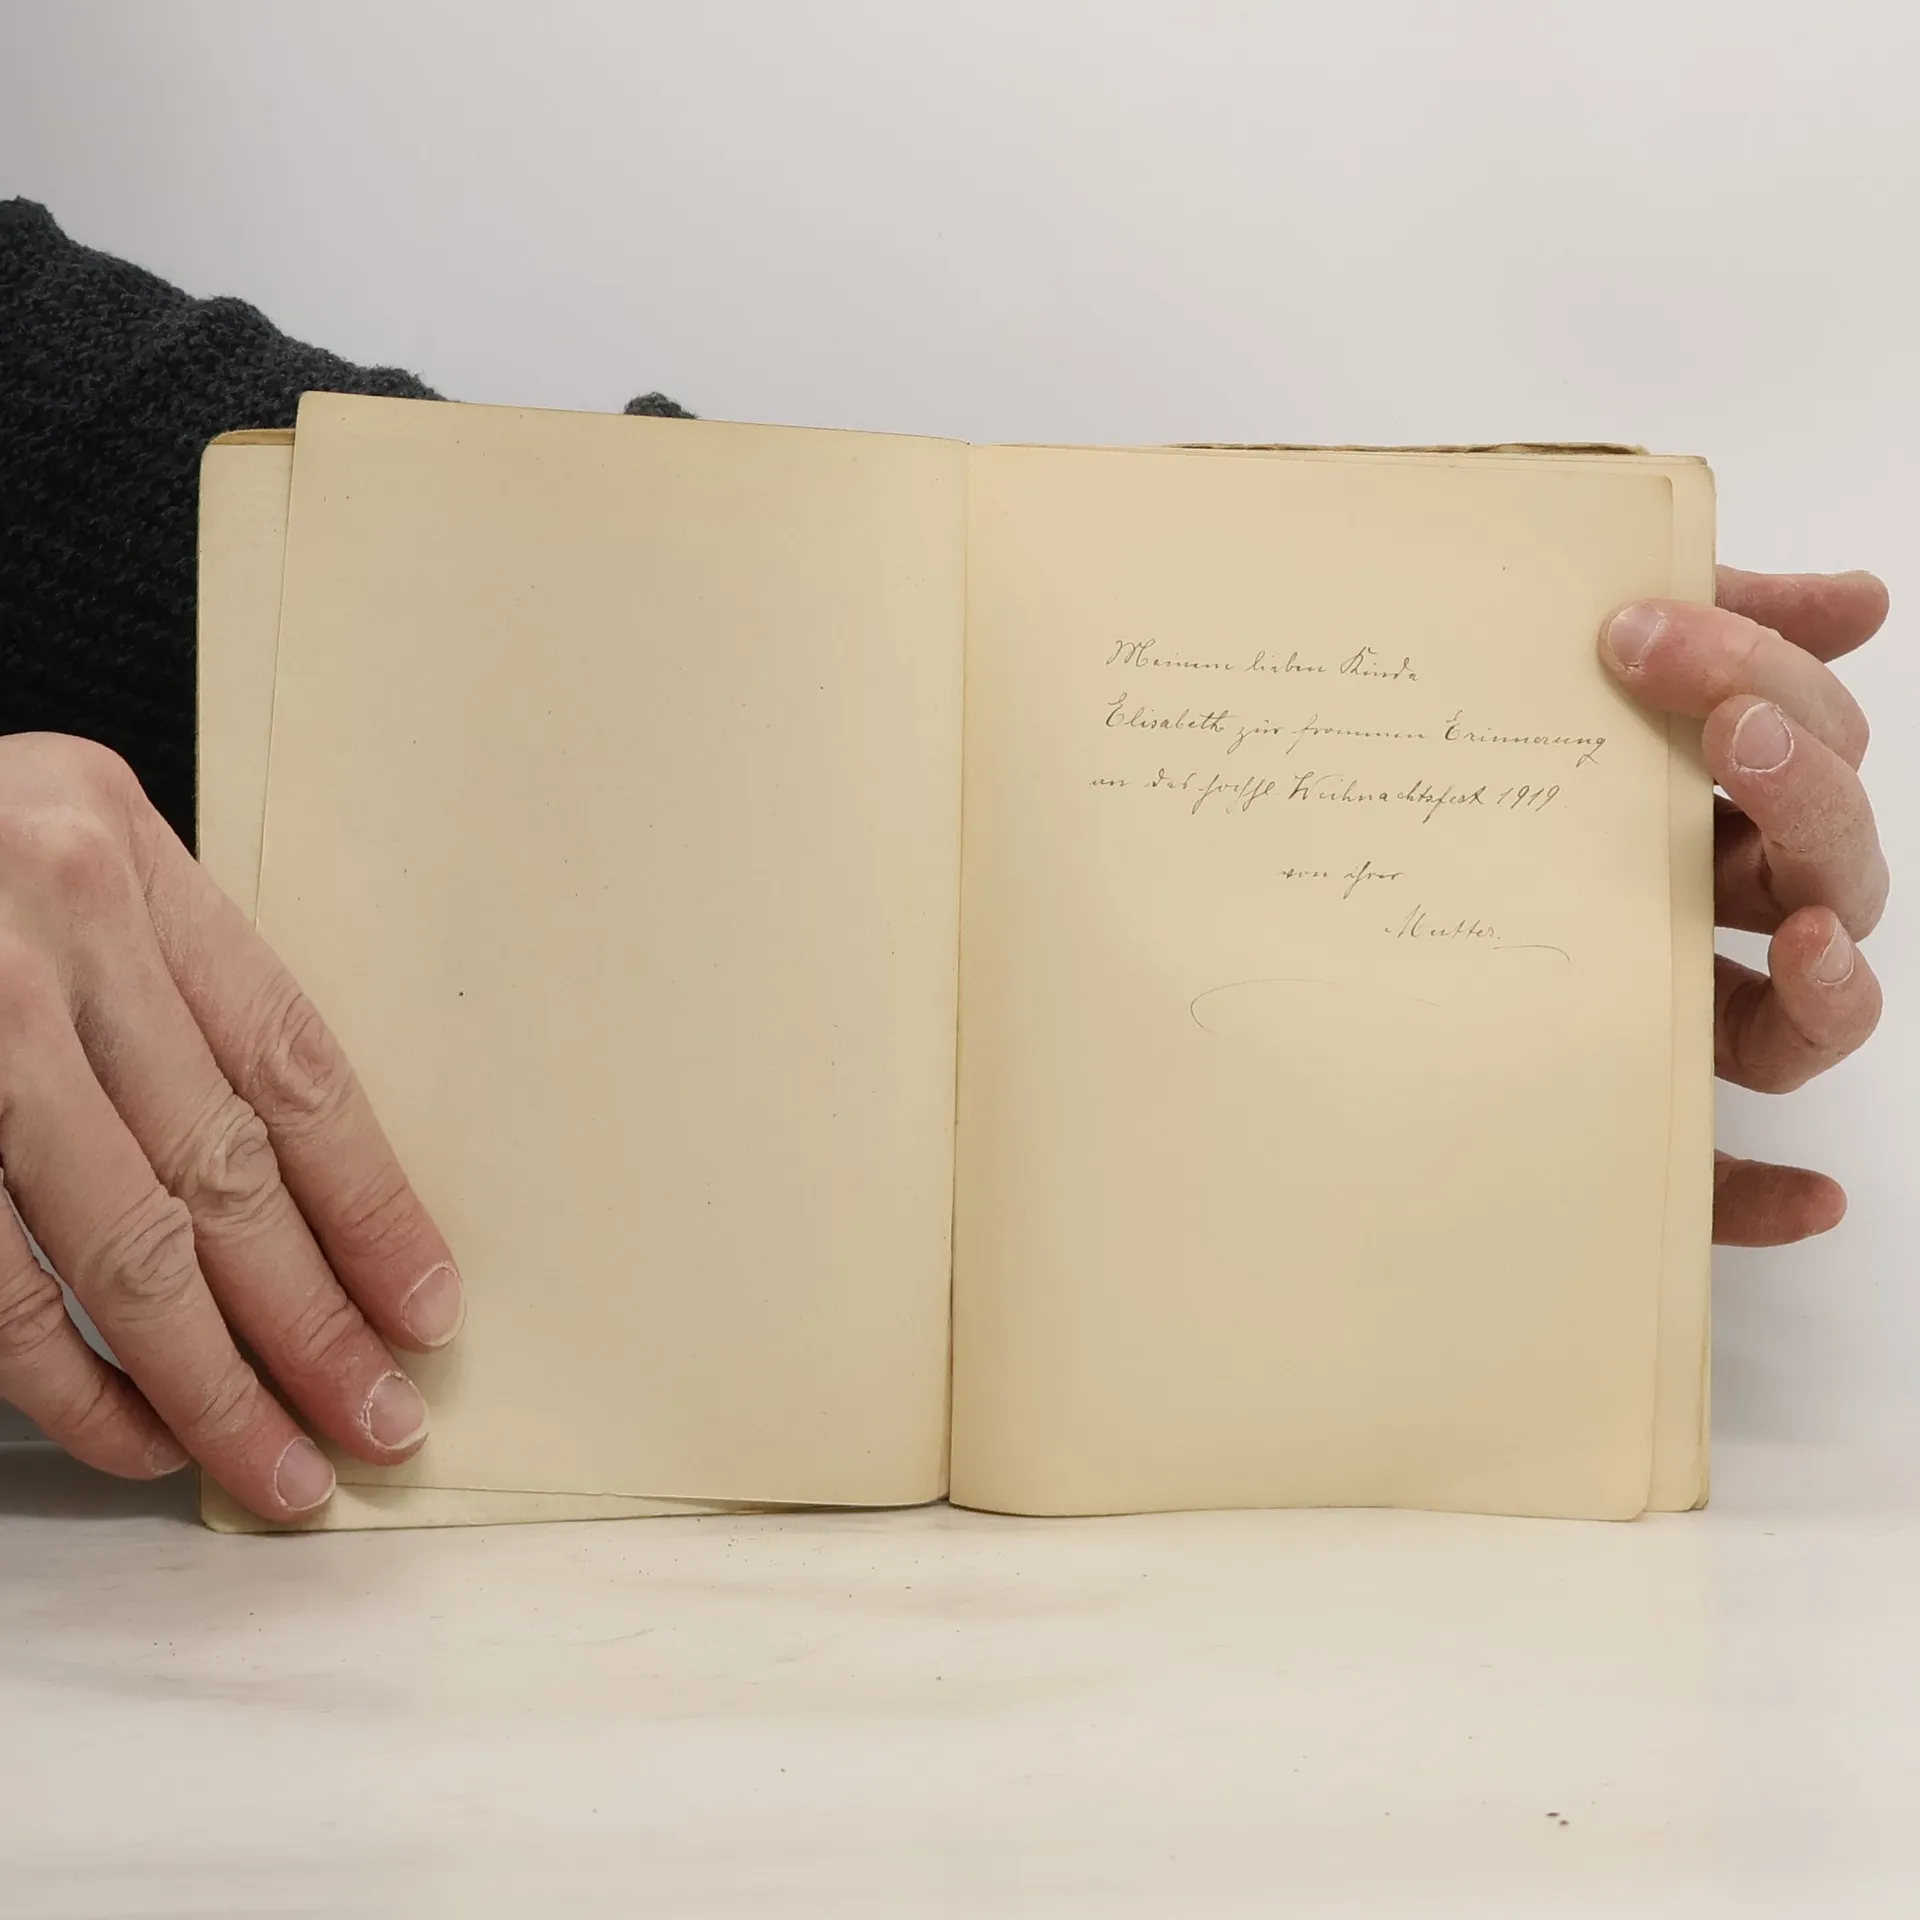 Meinem lieben Kinde
Elisabeth zur frommen Erinnerung
an das hochhl. Weihnachtsfest 1919.
von ihrer
Mutter.